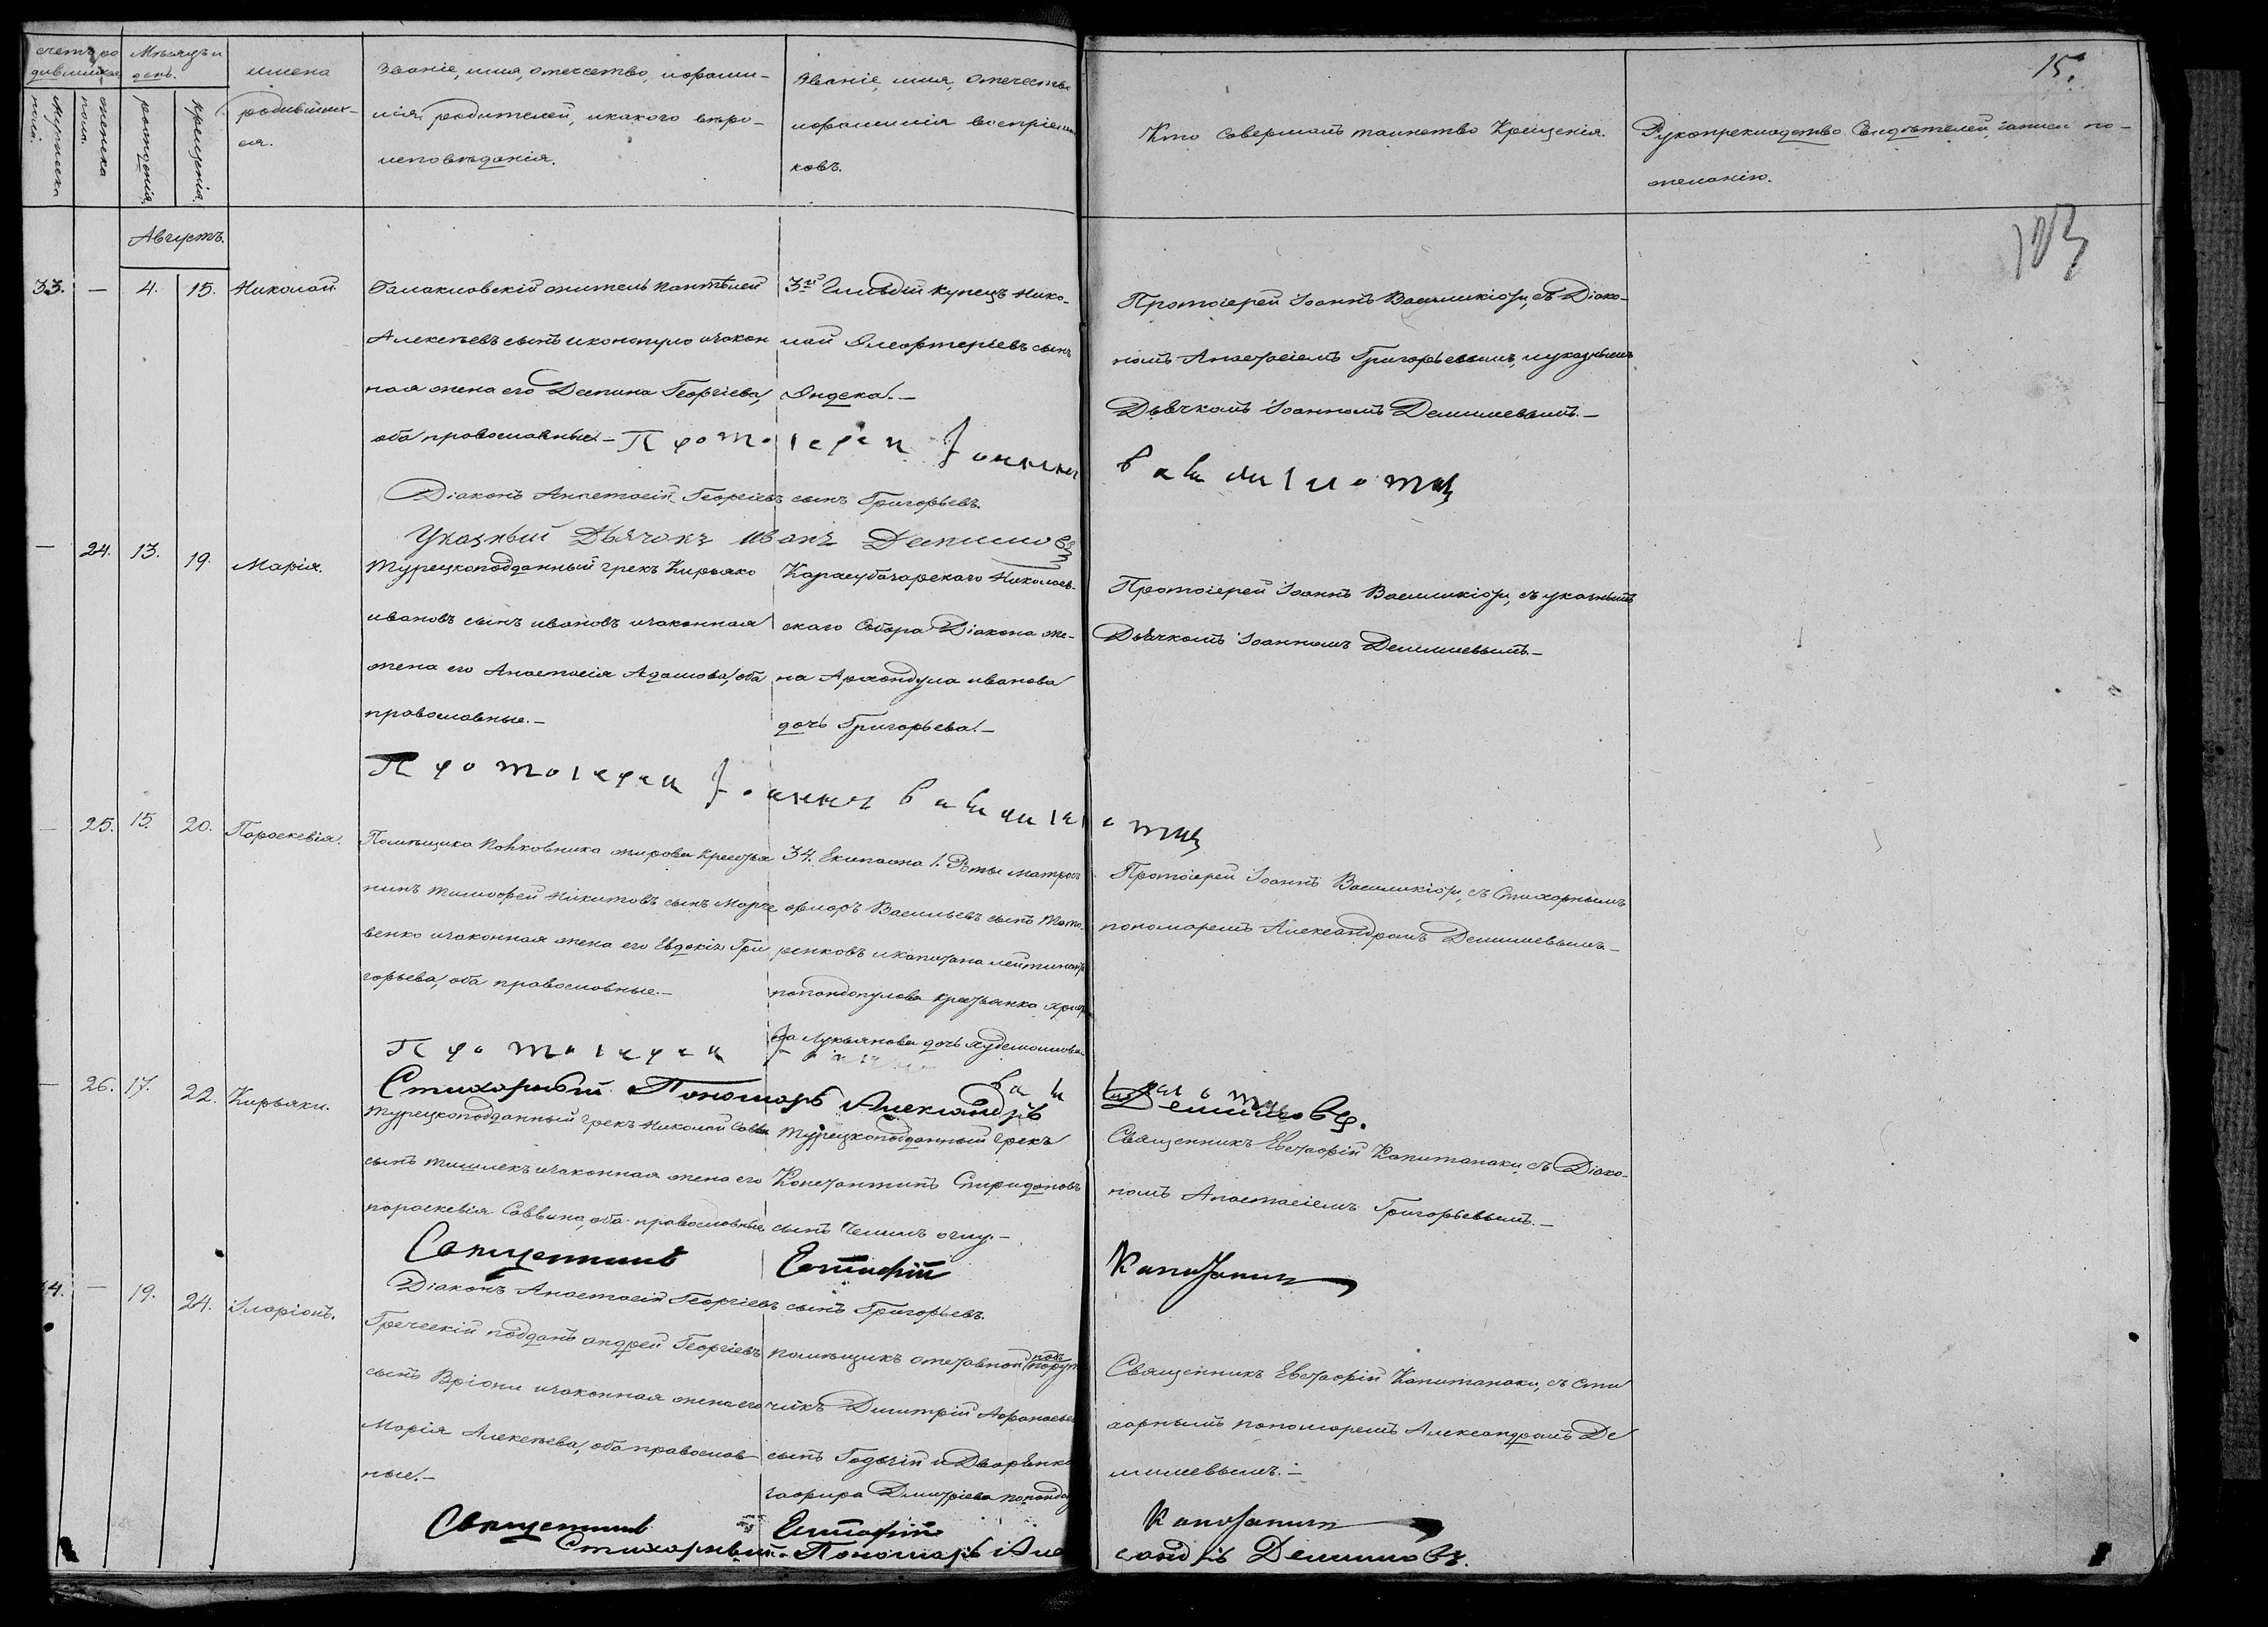 15.
счетъ родившихся
Мѣсяцъ и день.
Мужеска пола.
женска пола.
рожденія.
крещенія.
имена родившихся.
Званіе, имя, отечество, ифами-
лія, родителей, икакого вѣро-
исповѣданія.
Званіе, имя, отечество
ифамилія воспріемни
ковъ.
Кто совершалъ таинство Крещенія.
Рукоприкладство Свидѣтелей, записи по-
желанію.
103
Августъ.
33. — 4. 15. Николай
Балаклавскій житель Пантѣлей
Алексѣевъ сынъ икономуло изакон
ная жена его Деспина Георгіева,
оба православные.—
3й Гильдіи Купецъ Нико-
лай Элефтерьевъ сынъ
Яндека.—
Протоіерей Іоаннъ Василикіоти, съ Діако-
номъ Анастасіемъ Григорьевымъ, иуказнымъ
Дьячкомъ Іоанномъ Демишевымъ.—
Протоіерей Іоаннъ Василиіоти
Діаконъ Анастасій Георгіевъ сынъ Григорьевъ.
Указный Дьячокъ Иванъ Демишевъ
— 24. 13. 19. Марія.
Турецкоподданный грекъ Кирьяко
ивановъ сынъ ивановъ изаконная
жена его Анастасія Адамова, оба
православные.—
Карасубазарскаго Николаев-
скаго Собора Діакона же-
на Архондула иванова
дочь Григорьева.—
Протоіерей Іоаннъ Василикіоти, съ указнымъ
Дьячкомъ Іоанномъ Демишевымъ.—
Протоіерей Іоаннъ Василикіоти
— 25. 15. 20. Параскевія.
Помѣщика Полковника жирова Крестья
нинъ Тимофей Никитовъ сынъ Марче
венко изаконная жена его Евдокія Гри
горьева, оба православные.—
34. Екипажа 1. Роты матрозъ
флоръ Васильевъ сынъ Тата-
ренковъ икапитана лейтинанта
попандопулова крестьянка христ
Лукьянова дочь
Протоіерей Іоаннъ Василикіоти, съ Стихарнымъ
пономаремъ Александромъ Демишевымъ—
Протоіерей
Стихарный Пономарь Александръ Демишевъ.
— 26. 17. 22. Кирьяки.
Турецкоподданный грекъ Николай Савва
сынъ Тишлекъ изаконная жена его
параскевія Саввина, оба православные
Турецкоподданный Грекъ
Константинъ Спиридоновъ
сынъ Чешмъ оглу.—
Священникъ Евстафій Капитанаки, съ Діако-
номъ Анастасіемъ Григорьевымъ.—
Священникъ Евстафій Капитанаки
Діаконъ Анастасій Георгіевъ сынъ Григорьевъ.
34. — 19. 24. Иларіонъ.
Греческій поддан андрей Георгіевъ
сынъ Вріони изаконная жена его
Марія Алексѣева, оба православ-
ные.—
Помѣщикъ отставной подпору
чикъ Димитрій Афанасьевъ
сынъ Годзѣй и Дворянка
Замфира Дмитріева попандо
Священникъ Евстафій Капитанаки, съ сти
харнымъ пономаремъ Александромъ Де
мишевымъ.—
Священникъ Евстафій Капитанаки
Стихарный Пономарь Александръ Демишевъ.